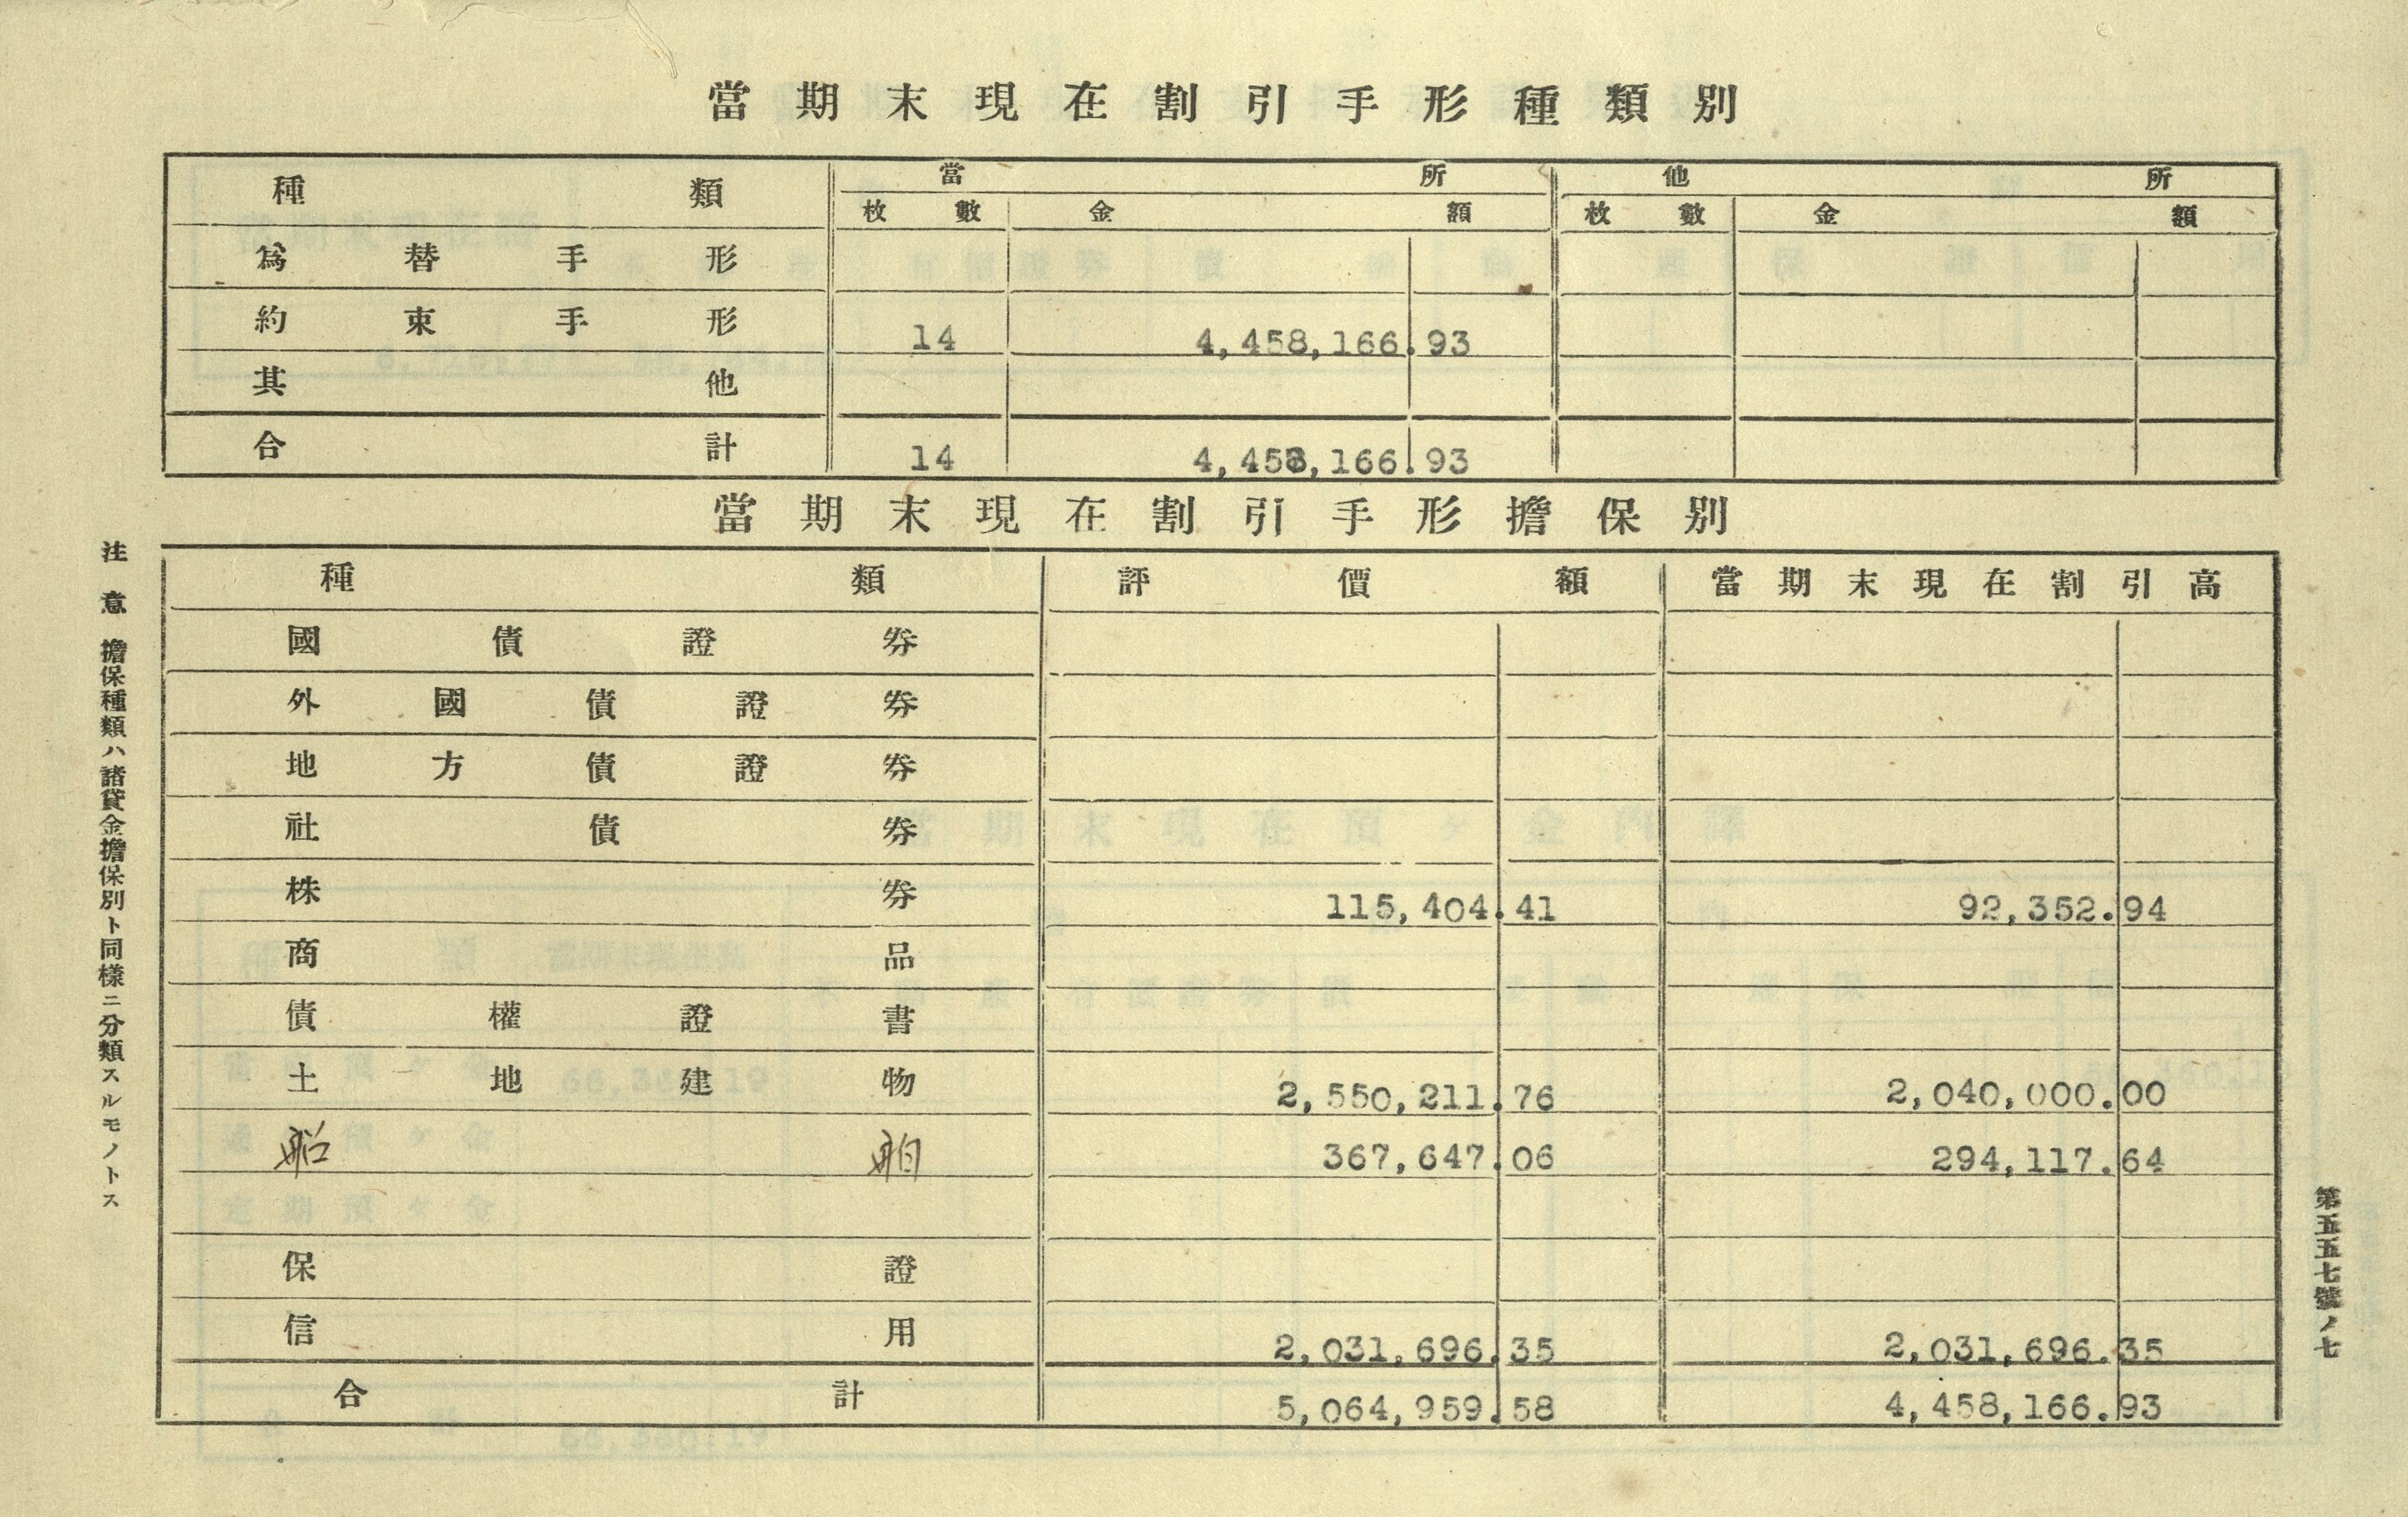 當期末現在割引手形種類別
種類 當所 他所
枚數 金額 枚數 金額
爲替手形
約束手形 14 4,458,166.93
其他
合計 14 4,458,166.93
當期末現在割引手形擔保別
種類 評價額 當期末現在割引高
國債證券
外國債證券
地方債證券
社債券
株券 115,404.41 92,352.94
商品
債權證書
土地建物 2,550,211.76 2,040,000.00
船舶 367,647.06 294,117.64
保證
信用 2,031,696.35 2,031,696.35
合計 5,064,959.58 4,458,166.93
注意 擔保種類ハ諸貸金擔保別ト同樣ニ分類スルモノトス
第五五七號ノ七